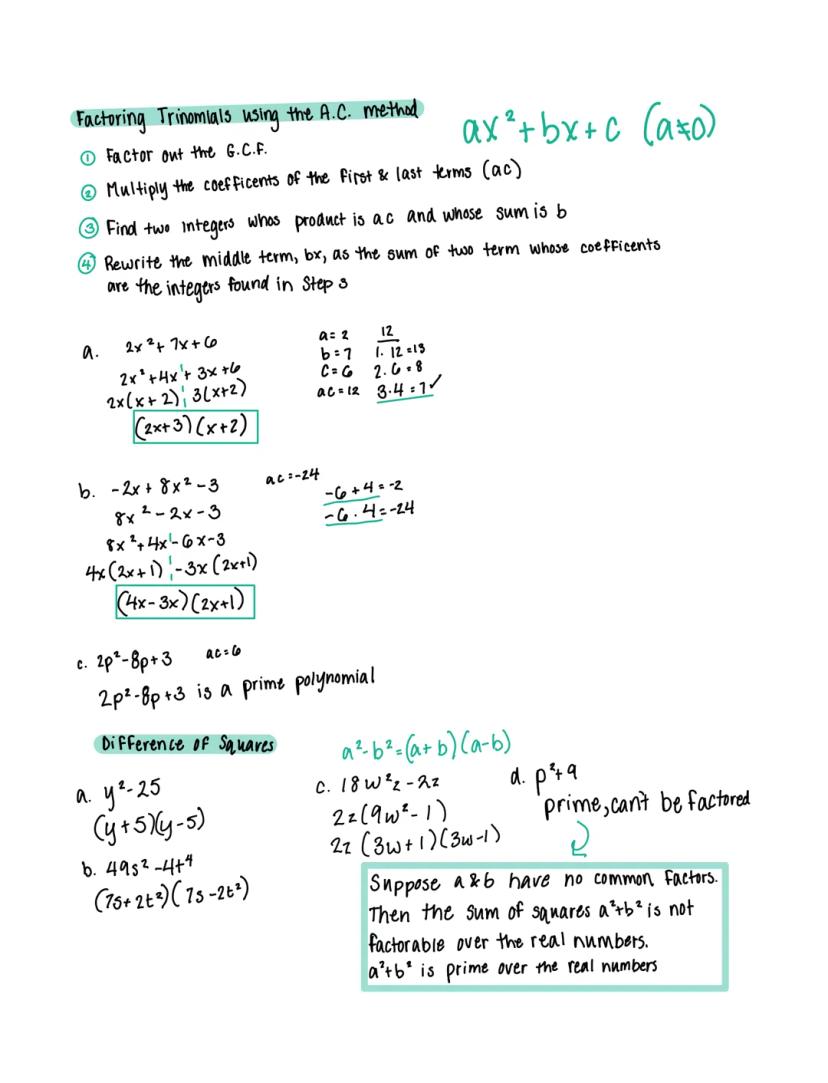 Factoring Trinomials using the A.C. method
ax² + bx + c (a≠0)
① Factor out the G.C.F.
② Multiply the coefficents of the first & last terms (ac)
③ Find two integers whos product is ac and whose sum is b
④ Rewrite the middle term, bx, as the sum of two term whose coefficents
are the integers found in Step 3
a. 2x² + 7x + 6
2x² + 4x + 3x + 6
2x(x + 2) 3(x+2)
(2x+3)(x+2)
a = 2
b = 7
c = 6
ac = 12
12
1·12=13
2·6=8
3·4=7✓
b. -2x + 8x² - 3
8x² - 2x - 3
8x² + 4x - 6x - 3
4x(2x+1) - 3x(2x+1)
(4x-3x)(2x+1)
ac=-24
-6 + 4 = -2
-6 · 4 = -24
c. 2p² - 8p + 3 ac=6
2p² - 8p + 3 is a prime polynomial
Difference of Squares
a² - b² = (a+b)(a-b)
a. y² - 25
(y+5)(y-5)
b. 49s² - 4t⁴
(7s+2t²)(7s-2t²)
c. 18w²z - 2z
2z(9w² - 1)
2z (3w+1)(3w-1)
d. p²+9
prime, can't be factored
Suppose a & b have no common factors.
Then the sum of squares a²+b² is not
factorable over the real numbers.
a²+b² is prime over the real numbers